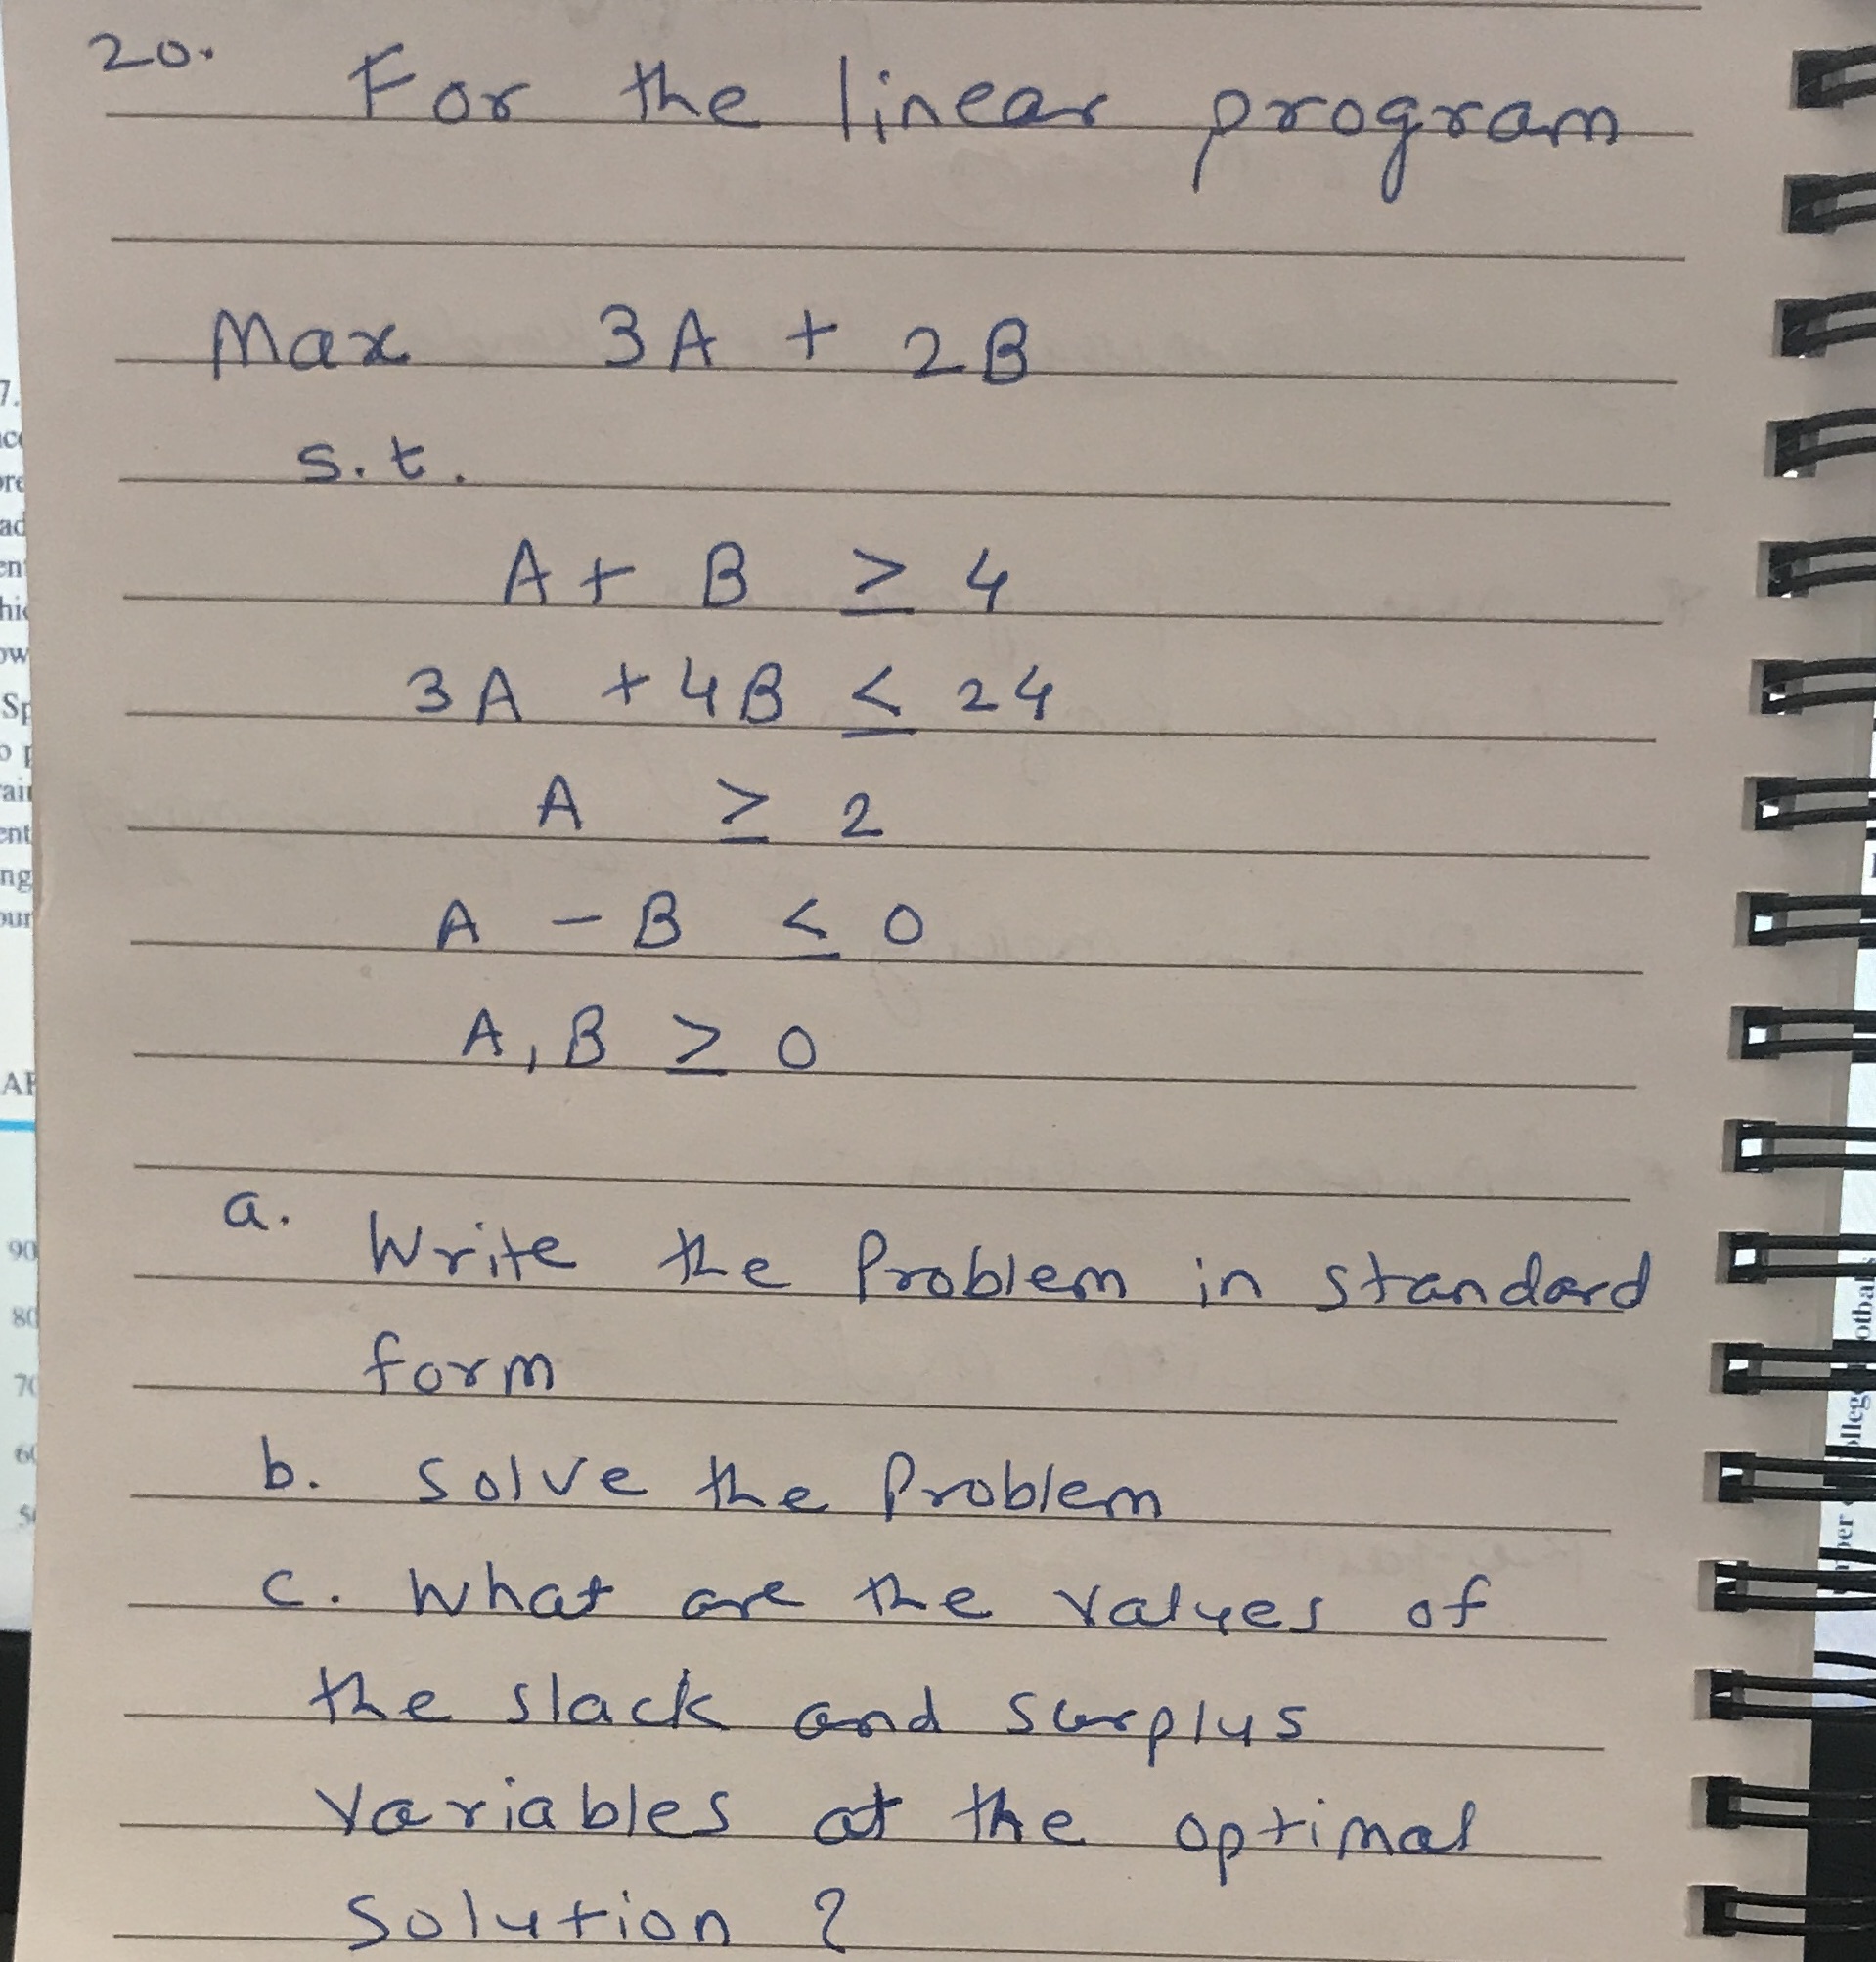 20.
For the linear program
Max 3A + 2B
s.t.
A + B ≥ 4
3A + 4B ≤ 24
A ≥ 2
A - B ≤ 0
A, B ≥ 0
a. Write the Problem in standard
form
b. Solve the Problem
c. What are the values of
the slack and surplus
variables at the optimal
solution ?
7.
ad
ow
90
80
70
60